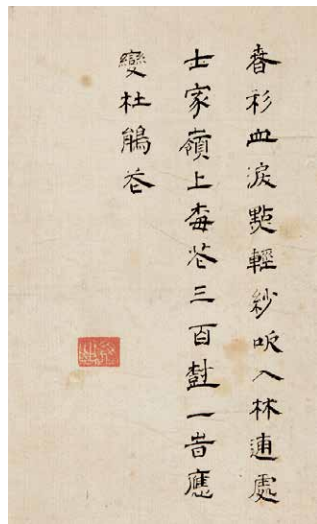 春衫血淚點輕紗吹入林逋處
士家嶺上梅花三百樹一旹應
變杜鵑花